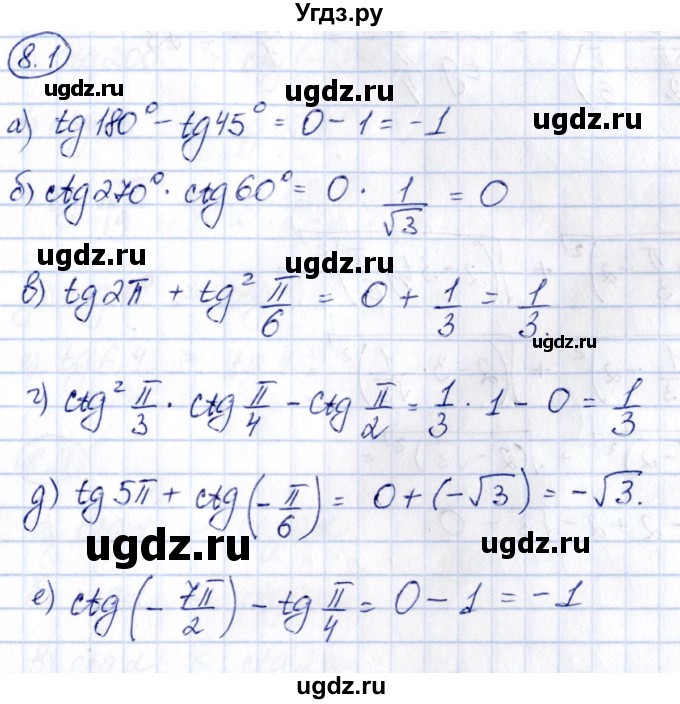 Угдз.ру
8.1
а) tg 180° − tg 45° = 0 − 1 = −1
ugdz.ru
ugdz.ru
б) ctg 270° · ctg 60° = 0 · 1/√3 = 0
ugdz.ru
ugdz.ru
в) tg 2π + tg² π/6 = 0 + 1/3 = 1/3.
ugdz.ru
г) ctg² π/3 · ctg π/4 − ctg π/2 = 1/3 · 1 − 0 = 1/3
ugdz.ru
д) tg 5π + ctg (−π/6) = 0 + (−√3) = −√3.
ugdz.ru
ugdz.ru
е) ctg (−7π/2) − tg π/4 = 0 − 1 = −1
ugdz.ru
ugdz.ru